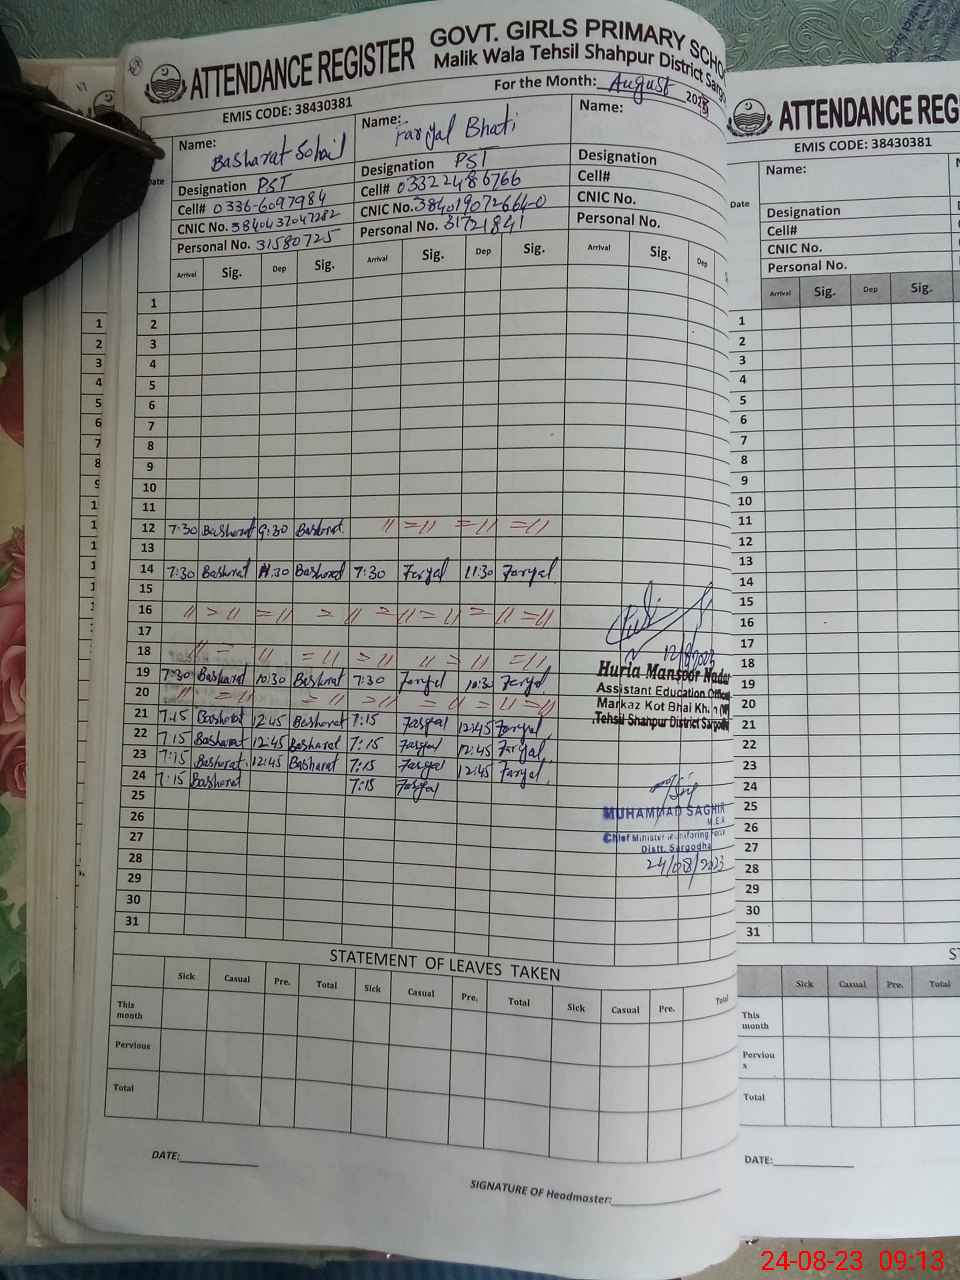 ATTENDANCE REGISTER
GOVT. GIRLS PRIMARY SCHO
Malik Wala Tehsil Shahpur District Sargo
EMIS CODE: 38430381
For the Month: August 2023
Date
Name: Basharat Sohail
Designation PST
Cell# 0336-6097984
CNIC No. 3840437047282
Personal No. 31580725
Name: Faryal Bhati
Designation PST
Cell# 03322486766
CNIC No. 384019072664-0
Personal No. 31721841
Name:
Designation
Cell#
CNIC No.
Personal No.
Arrival Sig. Dep Sig. Arrival Sig. Dep Sig. Arrival Sig. Dep
1
2
3
4
5
6
7
8
9
10
11
12 7:30 Basharat 9:30 Basharat 11 = 11 = 11 = 11
13
14 7:30 Basharat 11:30 Basharat 7:30 Faryal 11:30 Faryal
15
16 11 = 11 = 11 = 11 = 11 = 11 = 11 = 11
17
18 11 = 11 = 11 = 11 11 = 11 = 11
19 7:30 Basharat 10:30 Basharat 7:30 Faryal 10:30 Faryal
20 11 = 11 = 11 = 11 = 11 = 11 = 11
21 7:15 Basharat 12:45 Basharat 7:15 Faryal 12:45 Faryal
22 7:15 Basharat 12:45 Basharat 7:15 Faryal 12:45 Faryal
23 7:15 Basharat 12:45 Basharat 7:15 Faryal 12:45 Faryal
24 7:15 Basharat 7:15 Faryal
25
26
27
28
29
30
31
12/8/2023
Huria Mansoor Nadar
Assistant Education Officer
Markaz Kot Bhai Khan (W)
Tehsil Shahpur District Sargodha
MUHAMMAD SAGHIR
M.E.A
Chief Minister Monitoring Force
Distt. Sargodha
24/08/2023
STATEMENT OF LEAVES TAKEN
Sick Casual Pre. Total Sick Casual Pre. Total Sick Casual Pre. Total
This month
Pervious
Total
DATE:
SIGNATURE OF Headmaster:
ATTENDANCE REG
EMIS CODE: 38430381
Date
Name:
Designation
Cell#
CNIC No.
Personal No.
Arrival Sig. Dep Sig.
1
2
3
4
5
6
7
8
9
10
11
12
13
14
15
16
17
18
19
20
21
22
23
24
25
26
27
28
29
30
31
Sick Casual Pre. Total
This month
Perviou
x
Total
DATE:
24-08-23 09:13